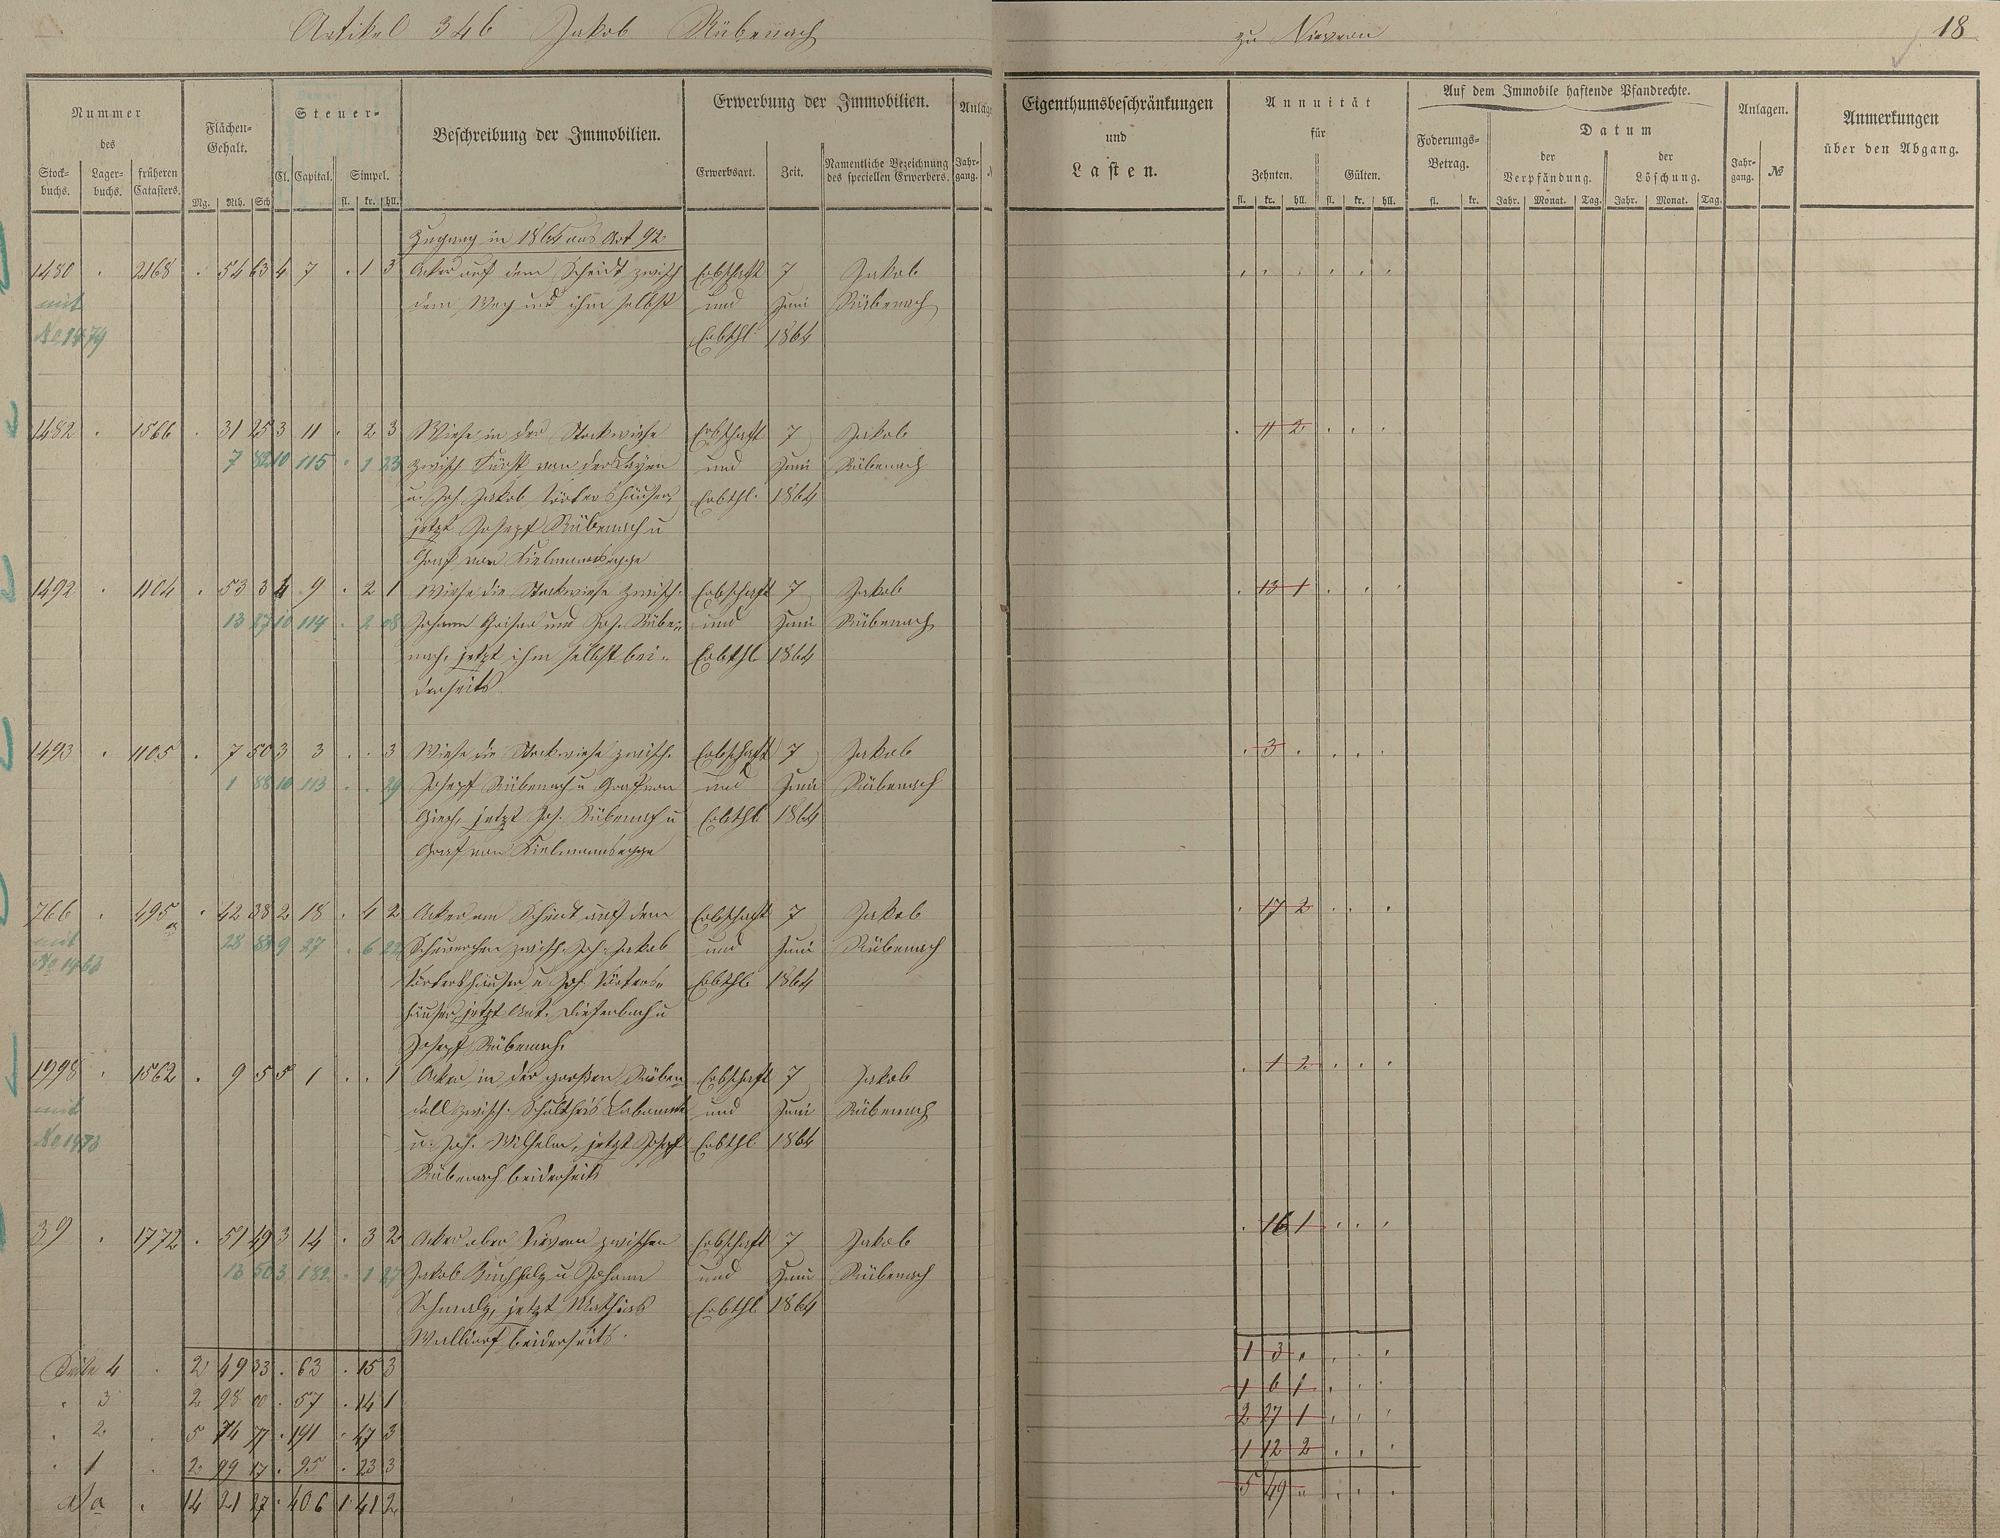 Artikel 346 Jakob Rübenach zu Nievern 18
Nummer
des
Stock-
buchs.
Lager-
buchs.
früheren
Catasters.
Flächen-
Gehalt.
Mg. Rth. Sch
Steuer-
Cl. Capital. Simpel.
fl. kr. hll.
Beschreibung der Immobilien.
Erwerbung der Immobilien.
Erwerbsart. Zeit.
Namentliche Bezeichnung
des speciellen Erwerbers.
Anlag
Jahr-
gang.
Eigenthumsbeschränkungen
und
Lasten.
Annuität
für
Zehnten. Gülten.
fl. kr. hll. fl. kr. hll.
Auf dem Immobile haftende Pfandrechte.
Foderungs-
Betrag.
fl. kr.
Datum
der
Verpfändung.
der
Löschung.
Jahr. Monat. Tag. Jahr. Monat. Tag.
Anlagen.
Jahr-
gang. №
Anmerkungen
über den Abgang.
Zugang in 1864 aus Art 92
1480 2168 54 63 4 7 1 3 Acker auf dem Scheidt zwisch Erbschaft 7 Jakob
mit dem Weg und ihm selbst und Juni Rübenach
No 1479 Erbthl 1864
1482 1566 31 25 3 11 2 3 Wiese in der Stockwiese Erbschaft 7 Jakob 11 2
7 82 10 115 1 23 zwisch Fürst von der Layen und Juni Rübenach
u. Joh. Jakob Törtershäuser Erbthl. 1864
jetzt Joseph Rübenach u
Graf von Kielmannsegge
1492 1104 53 3 4 9 2 1 Wiese die Stockwiese zwisch. Erbschaft 7 Jakob 13 1
13 27 10 114 2 08 Johann Geiser und Joh. Rübe- und Juni Rübenach
nach, jetzt ihm selbst bei- Erbthl 1864
derseits
1493 1105 7 50 3 3 3 Wiese die Stockwiese zwisch. Erbschaft 7 Jakob 3
1 88 10 113 29 Joseph Rübenach u Graf von und Juni Rübenach
Giech, jetzt Joh. Rübenach u Erbthl 1864
Graf von Kielmannsegge
766 495a 42 38 2 18 4 2 Acker am Scheidt auf dem Erbschaft 7 Jakob 17 2
mit 28 88 9 27 6 22 zwisch. Joh. Jakob und Juni Rübenach
No 1466 Törtershäuser u Joh Törters- Erbthl 1864
häuser, jetzt Ant. Diefenbach u
Joseph Rübenach.
1998 1562 9 5 5 1 1 Acker in der großen Rüben Erbschaft 7 Jakob 1 2
mit dell zwisch. Schultheis und Juni Rübenach
No 1473 u. Joh. Wilhelm, jetzt Joseph Erbthl 1864
Rübenach beiderseits
39 1772 51 49 3 14 3 2 Acker ober Nievern zwischen Erbschaft 7 Jakob 16 1
13 50 3 182 1 27 Jakob Buchholz u Johann und Juni Rübenach
Schmalz, jetzt Mathias Erbthl 1864
Walldorf beiderseits.
Seite 4 2 49 33 63 15 3 1 3
" 3 2 98 00 57 14 1 1 6 1
" 2 5 74 77 191 47 3 2 27 1
" 1 2 99 17 95 23 3 1 12 2
14 21 27 406 1 41 2 5 49